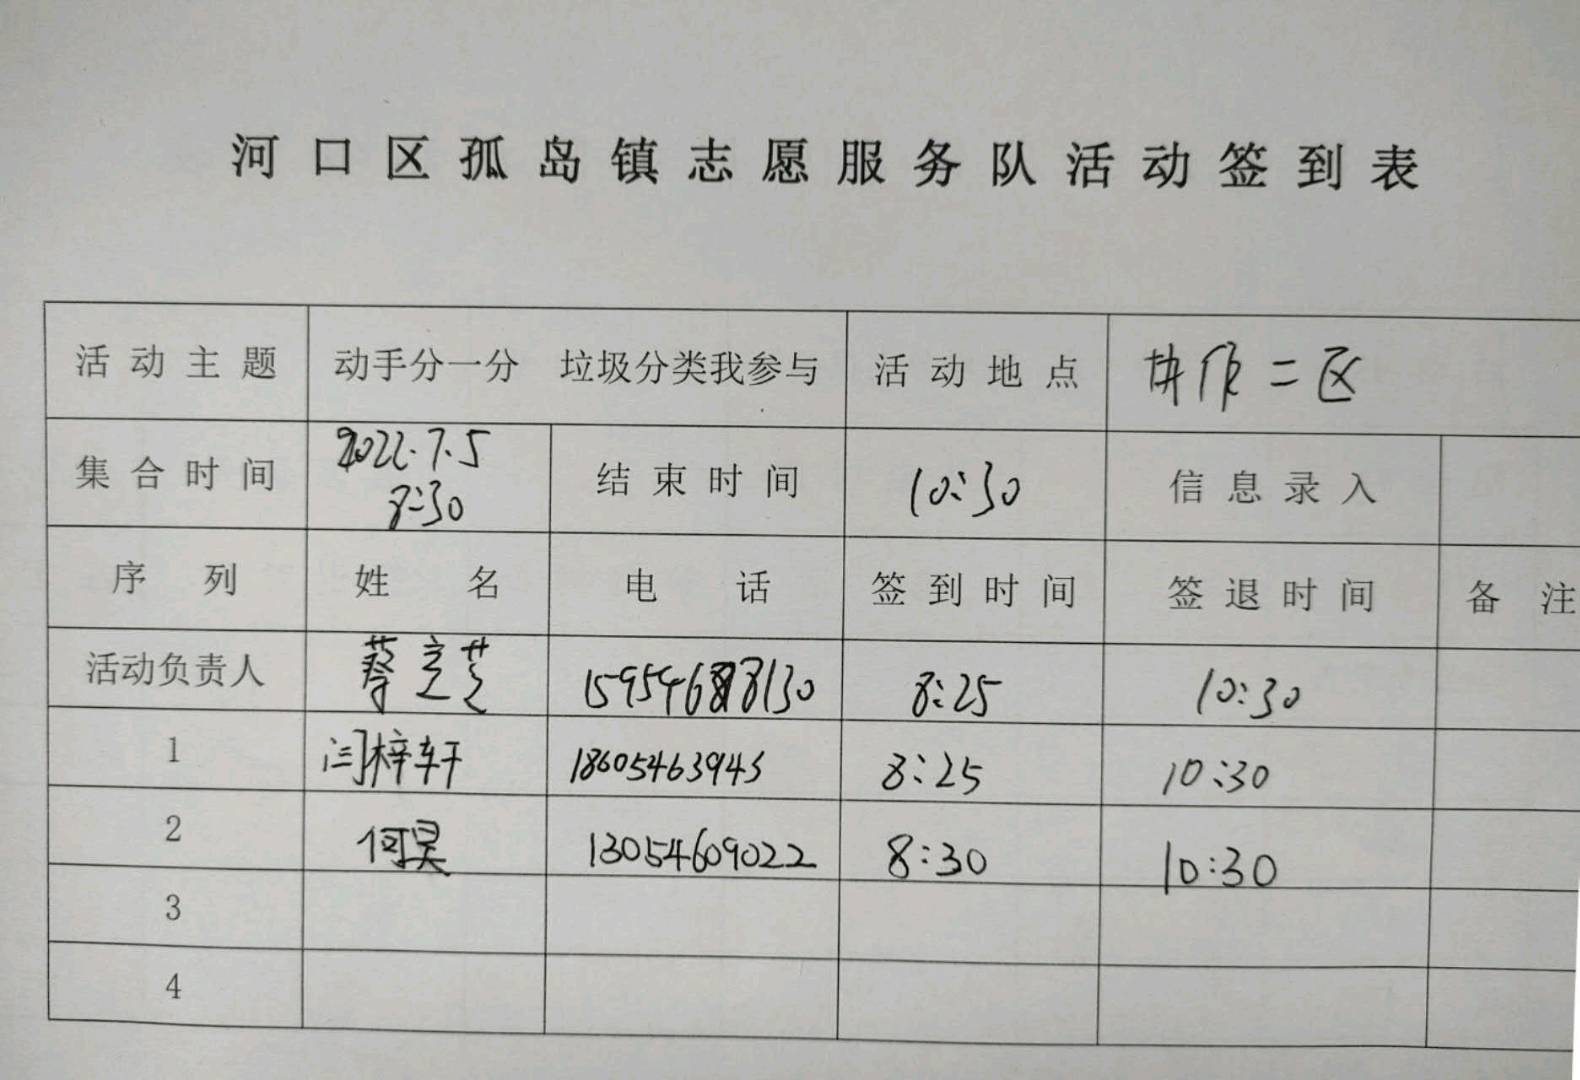 河口区孤岛镇志愿服务队活动签到表
活动主题 动手分一分 垃圾分类我参与 活动地点 协作二区
集合时间 2022.7.5 8:30 结束时间 10:30 信息录入
序列 姓名 电话 签到时间 签退时间 备注
活动负责人 蔡立芝 8:25 10:30
1 闫梓轩 18605463943 8:25 10:30
2 何昊 13054609022 8:30 10:30
3
4